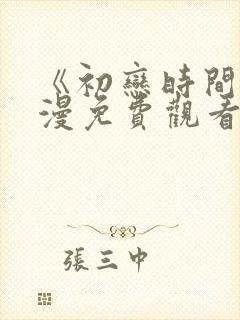 《初戀時間
漫免費觀看
張三中